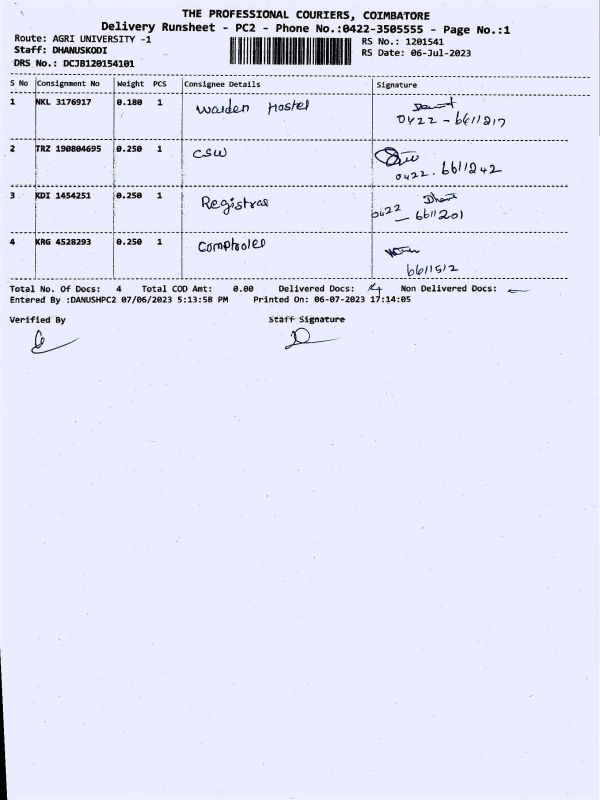 THE PROFESSIONAL COURIERS, COIMBATORE
Delivery Runsheet - PC2 - Phone No.:0422-3505555 - Page No.:1
Route: AGRI UNIVERSITY -1 RS No.: 1201541
Staff: DHANUSKODI RS Date: 06-Jul-2023
DRS No.: DCJB120154101
S No Consignment No Weight PCS Consignee Details Signature
1 NKL 3176917 0.180 1 Warden Hostel
0422 - 6611217
2 TRZ 190804695 0.250 1 CSW
0422. 6611242
3 KDI 1454251 0.250 1 Registrar
0422 - 6611201
4 KRG 4528293 0.250 1 Comptroler
6611512
Total No. Of Docs: 4 Total COD Amt: 0.00 Delivered Docs: 4 Non Delivered Docs: -
Entered By :DANUSHPC2 07/06/2023 5:13:58 PM Printed On: 06-07-2023 17:14:05
Verified By Staff Signature